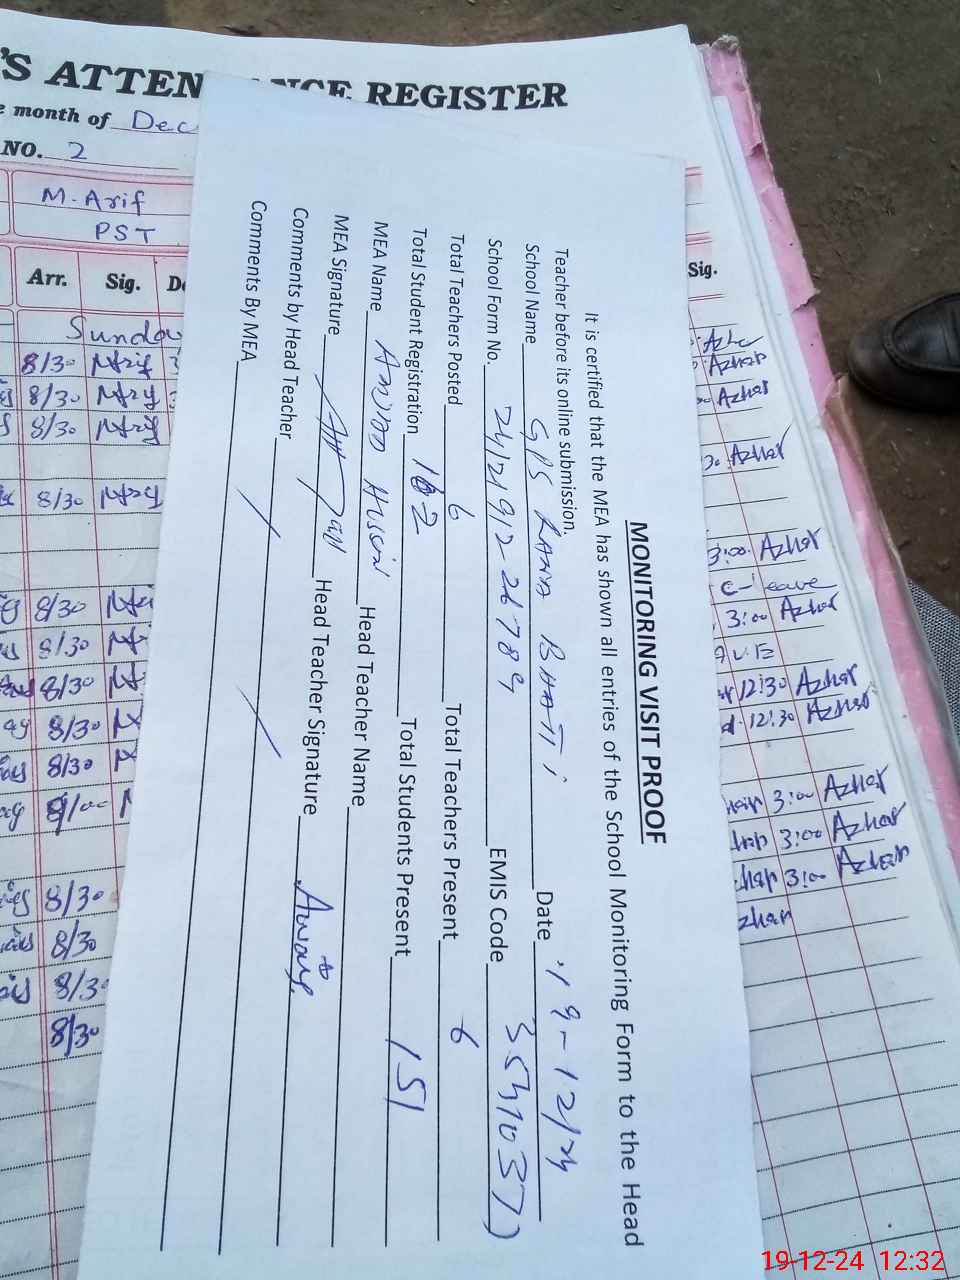 'S ATTEN NCE REGISTER
e month of Dec
NO. 2
M. Arif
PST
Arr. Sig.
Sunday
8/30
8/30
8/30
8/30
8/30
8/30
8/30
8/30
8/30
9/00
8/30
8/30
8/30
8/30
Sig.
Azhar
Azhar
Azhar
3:00 Azhar
C-leave
3:00 Azhar
12:30 Azhar
12:30 Azhar
3:00 Azhar
3:00 Azhar
3:00 Azhar
MONITORING VISIT PROOF
It is certified that the MEA has shown all entries of the School Monitoring Form to the Head
Teacher before its online submission.
School Name GPS RANA BHATTI Date 19-12/24
School Form No. EMIS Code
Total Teachers Posted 6 Total Teachers Present 6
Total Student Registration 162 Total Students Present 151
MEA Name Head Teacher Name
MEA Signature Head Teacher Signature Awais
Comments by Head Teacher
Comments By MEA
19-12-24 12:32